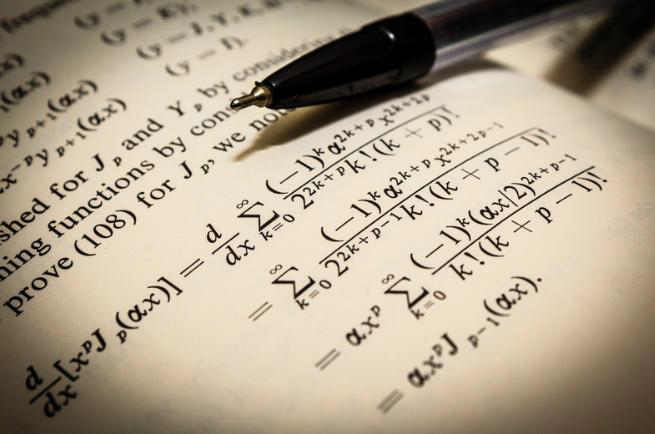 frequen
(y = J, Y, K,
(y = K);
(y = J, Y, K,
(y = I).
(αx)
1(αx)
y p+1(αx)
x⁻ᵖy p+1(αx)
shed for J p and Y p by considering
ning functions by cons
prove (108) for J p, we no
d/dx[xᵖJ p(αx)] = d/dx ∑_{k=0}^{∞} (−1)ᵏα²ᵏ⁺ᵖx²ᵏ⁺²ᵖ / 2²ᵏ⁺ᵖk!(k + p)!
= ∑_{k=0}^{∞} (−1)ᵏα²ᵏ⁺ᵖx²ᵏ⁺²ᵖ⁻¹ / 2²ᵏ⁺ᵖ⁻¹k!(k + p − 1)!
= αxᵖ ∑_{k=0}^{∞} (−1)ᵏ(αx/2)²ᵏ⁺ᵖ⁻¹ / k!(k + p − 1)!
= αxᵖJ p−1(αx).